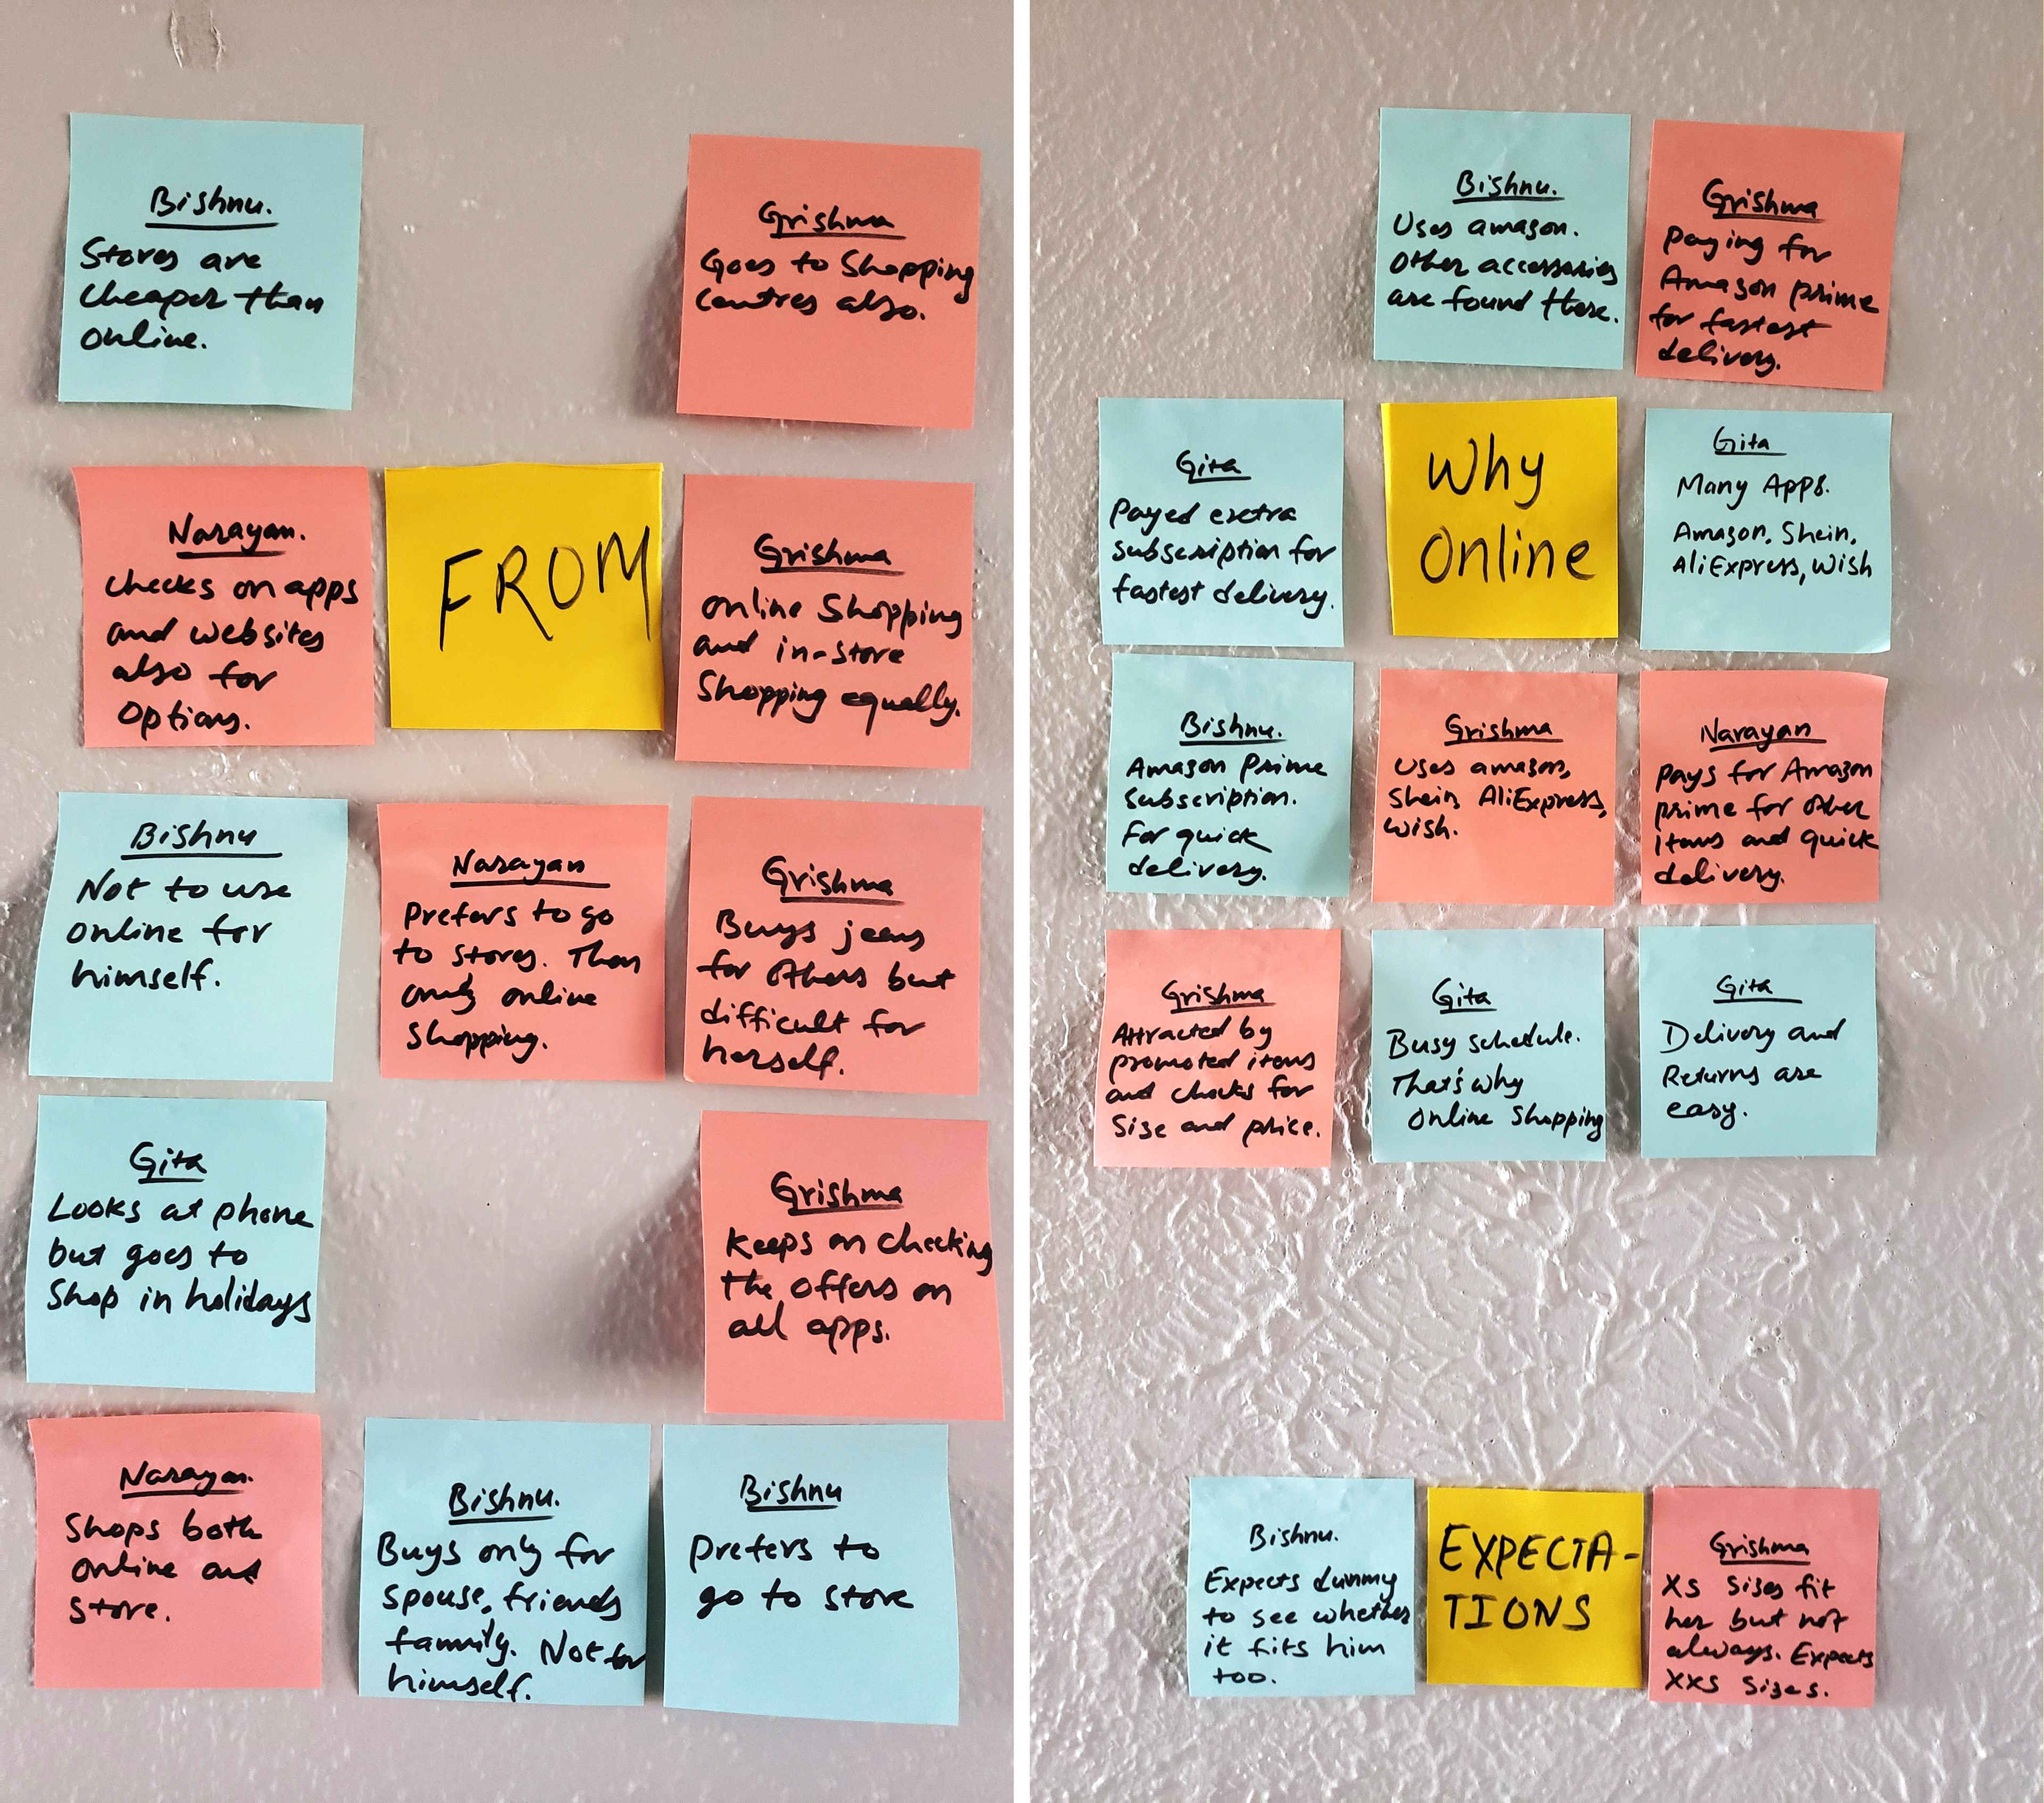 Bishnu.
Stores are
cheaper than
online.
Grishma
Goes to Shopping
centres also.
Narayan.
checks on apps
and websites
also for
options.
FROM
Grishma
online Shopping
and in-store
Shopping equally.
Bishnu
Not to use
online for
himself.
Narayan
Prefers to go
to stores. Then
only online
shopping.
Grishma
Buys jeans
for others but
difficult for
herself.
Gita
Looks at phone
but goes to
Shop in holidays
Grishma
Keeps on checking
the offers on
all apps.
Narayan.
Shops both
online and
store.
Bishnu.
Buys only for
spouse, friends
family. Not for
himself.
Bishnu
prefers to
go to store
Bishnu.
Uses amazon.
Other accessories
are found there.
Grishma
Paying for
Amazon prime
for fastest
delivery.
Gita
Payed extra
subscription for
fastest delivery.
Why
Online
Gita
Many Apps.
Amazon, Shein,
AliExpress, Wish
Bishnu.
Amazon Prime
subscription.
For quick
delivery.
Grishma
Uses amazon,
Shein, AliExpress,
Wish.
Narayan
pays for Amazon
prime for other
items and quick
delivery.
Grishma
Attracted by
promoted items
and checks for
Size and price.
Gita
Busy schedule.
That's why
online shopping
Gita
Delivery and
Returns are
easy.
Bishnu.
Expects dummy
to see whether
it fits him
too.
EXPECTA-
TIONS
Grishma
XS Sizes fit
her but not
always. Expects
XXS Sizes.